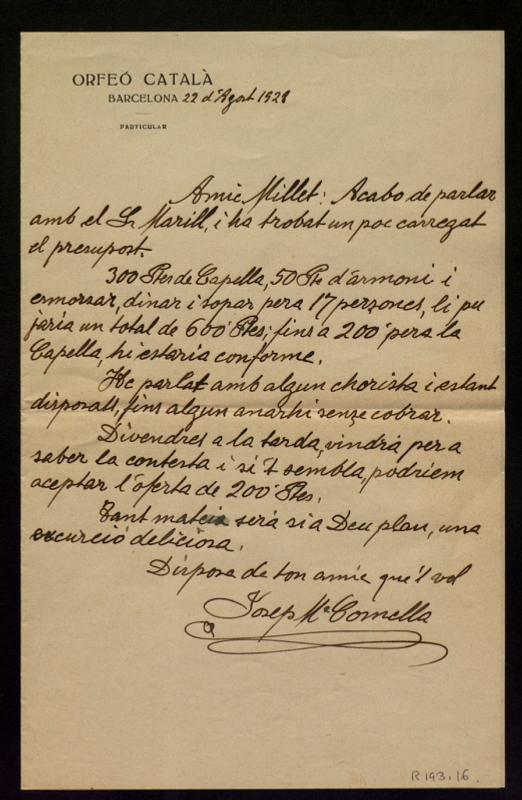 ORFEÓ CATALÀ
BARCELONA 22 d'Agost 1928
PARTICULAR
Amic Millet: Acabo de parlar
amb el Sr Marill, i ha trobat un poc carregat
el presupost.
300 Ptes de Capella, 50 Pts d'armoni i
esmorsar, dinar i sopar pera 17 persones, li pu
jaria un total de 600 Ptes; fins a 200 pera la
Capella, hi estaria conforme.
He parlat amb algun chorista i estant
disposats, fins algun anarhi sense cobrar.
Divendres a la tarda, vindria per a
saber la contesta i si 't sembla, podriem
aceptar l'oferta de 200 Ptes.
Tant mateix será si a Deu plau, una
excurció deliciosa.
Disposa de ton amic que 't vol
Josep Mª Comella
R 193.16.